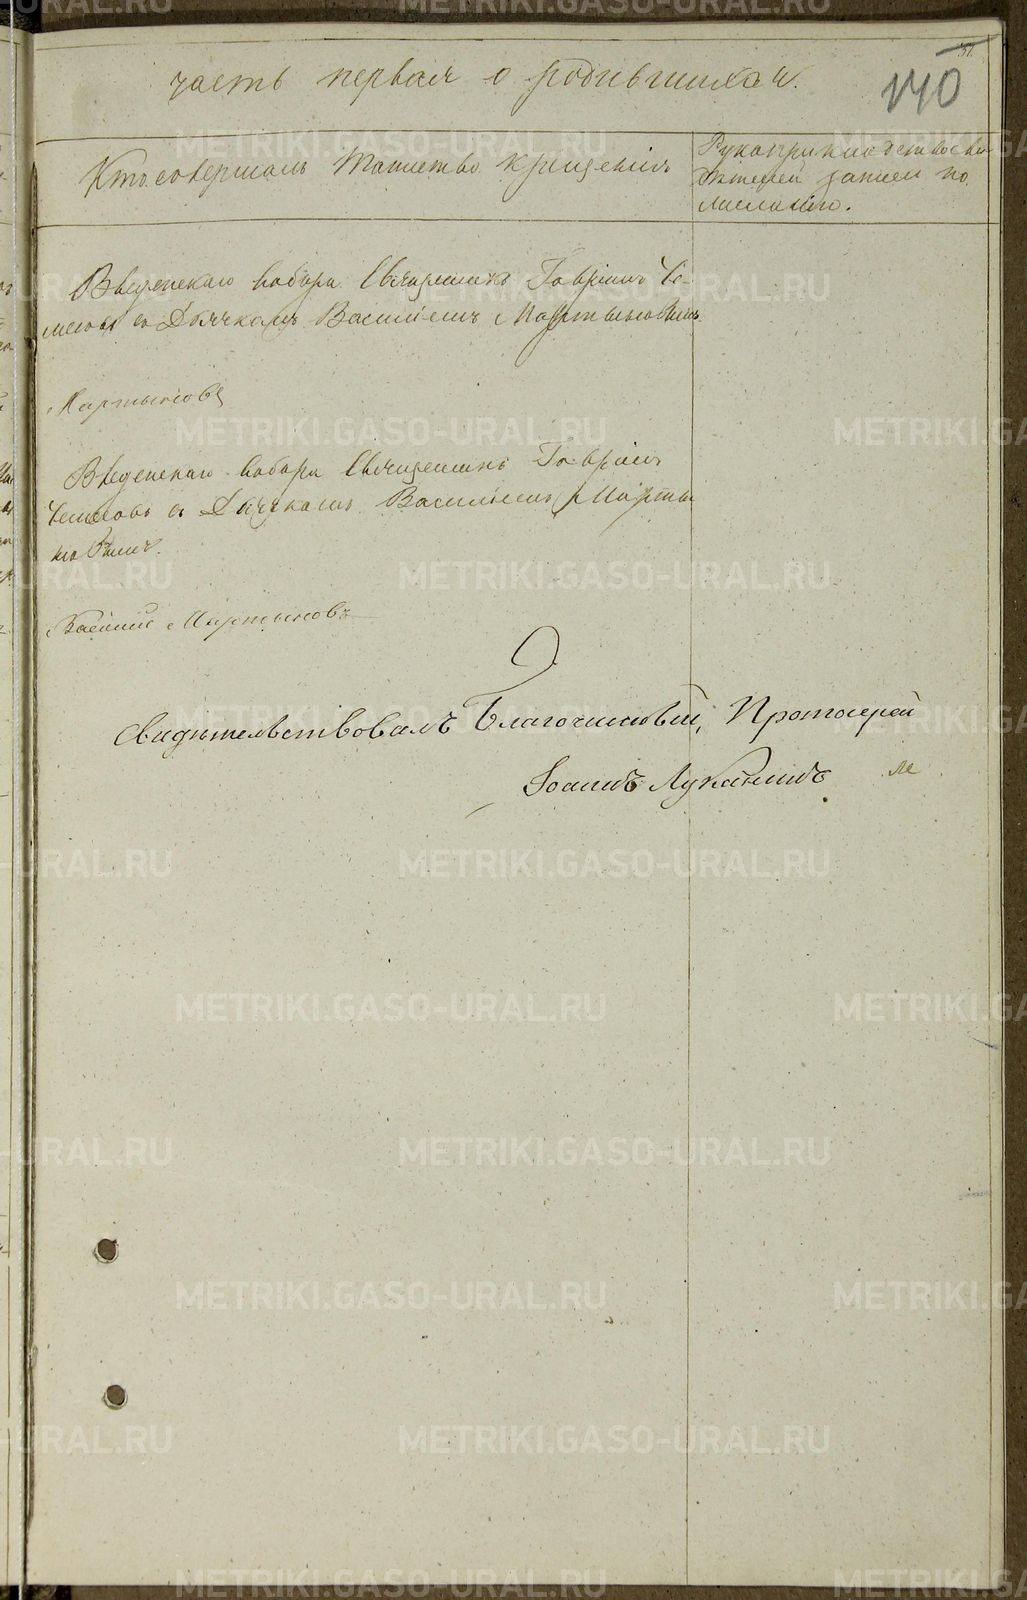 140
часть первая о родившихся.
Кто совершалъ таинство крещенія
Рукоприкладство сви
дѣтелей записи по
желанію.
Введенскаго Собора Священникъ Гавріилъ
съ Дьячкомъ Василіемъ Мартыновымъ
Мартыновъ
Введенскаго Собора Священникъ Гавріилъ
съ Дьячкомъ Василіемъ Марты
новымъ.
Василій Мартыновъ
Свидѣтельствовалъ Благочинный, Протоіерей
Іоаннъ Луканинъ
METRIKI.GASO-URAL.RU